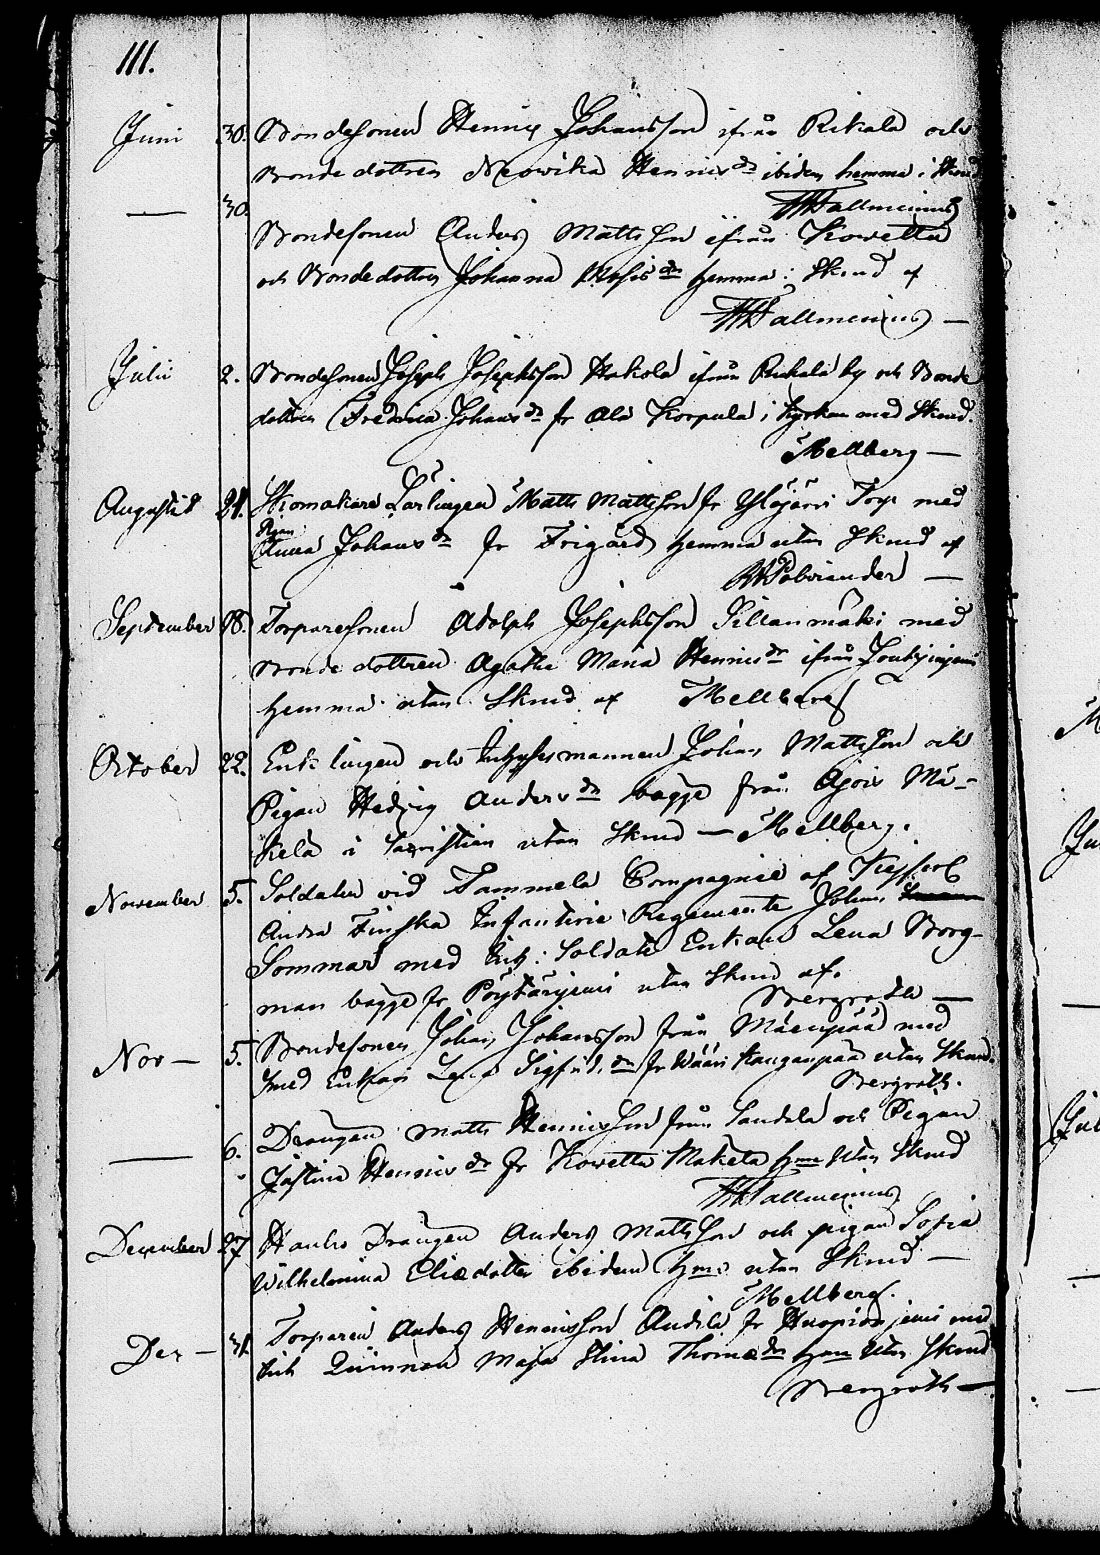 111.
Juni 30. Bondesonen Henric Johansson ifrån Rikala och
Bonde dottren Hennicsdr ibidem hemma i Skrud
— 30. HHallmenius
Bondesonen Anders Mattsson ifrån Kowella
och Bondedottren Johanna Mosisdr hemma i Skrud af
HHallmenius —
Julii 2. Bondesonen Joseph Josephsson Hakola ifrån Rickala by och Bonde
dottren Fredrica Johansdr fr Ala Korpula i Kyrkan med Skrud.
Mellberg —
Augusti 21. Skomakare Lärlingen Matts Mattsson fr Ylöjärvi Torp med
Pigan
Anna Johansdr fr Frigård hemma utan Skrud af
—
September 18. Torparesonen Adolph Josephsson Sillanmäki med
Bonde dottren Agatha Maria Henricsdr ifrån
hemma utan Skrud af Mellberg
October 22. Enklingen och Inhysesmannen Johan Mattsson och
Pigan Hedvig Andersdr bägge från Ajois Mä-
kelä i Sacristian utan Skrud — Mellberg.
November 5. Soldaten vid Tammela Compagnie af Kejserl
Andra Finska Infanterie Regemente Johan
Sommar med Enk: Soldats Enkan Lena Borg-
man bägge fr utan Skrud af.
Bergroth —
Nov — 5. Bondesonen Johan Johansson från Mäenpää med
med Enkan Lena Sigfridsdr fr Wääri Kanganpää utan Skrud.
Bergroth.
— 6. Drängen Matts Henricsson från Sandala och Pigan
Justina Henricsdr fr Kowella Makela hma utan Skrud
HHallmenius
December 27 Drängen Anders Mattsson och pigan Sofia
Wilhelmina Eliædotter ibidem hma utan Skrud —
Mellberg.
Dec — 31. Torparen Anders Henricsson Andila fr med
Enk Quinnan Maja Stina Thomædr hma utan Skrud
Bergroth —